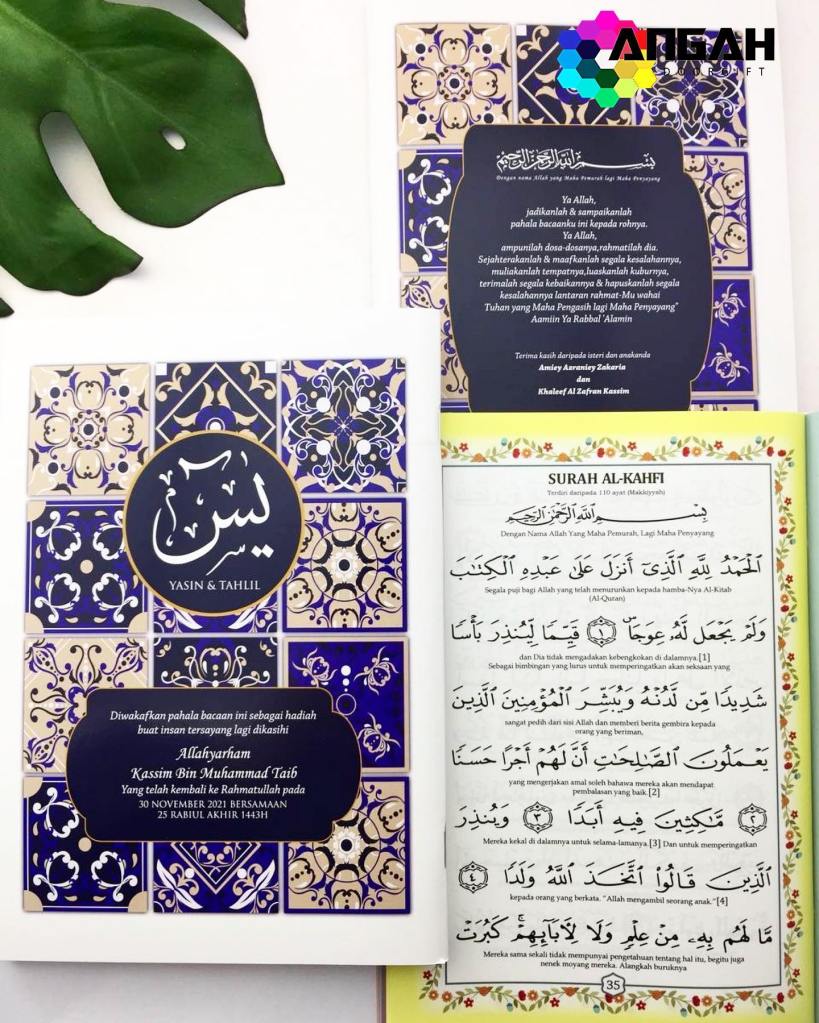 ANGAH
DOORGIFT
بسم الله الرحمن الرحيم
Dengan nama Allah yang Maha Pemurah lagi Maha Penyayang
Ya Allah,
jadikanlah & sampaikanlah
pahala bacaanku ini kepada rohnya.
Ya Allah,
ampunilah dosa-dosanya,rahmatilah dia.
Sejahterakanlah & maafkanlah segala kesalahannya,
muliakanlah tempatnya,luaskanlah kuburnya,
terimalah segala kebaikannya & hapuskanlah segala
kesalahannya lantaran rahmat-Mu wahai
Tuhan yang Maha Pengasih lagi Maha Penyayang"
Aamiin Ya Rabbal 'Alamin
Terima kasih daripada isteri dan anakanda
Amiey Azraniey Zakaria
dan
Khaleef Al Zafran Kassim
يس
YASIN & TAHLIL
Diwakafkan pahala bacaan ini sebagai hadiah
buat insan tersayang lagi dikasihi
Allahyarham
Kassim Bin Muhammad Taib
Yang telah kembali ke Rahmatullah pada
30 NOVEMBER 2021 BERSAMAAN
25 RABIUL AKHIR 1443H
SURAH AL-KAHFI
Terdiri daripada 110 ayat (Makkiyyah)
بِسْمِ اللَّهِ الرَّحْمَٰنِ الرَّحِيمِ
Dengan Nama Allah Yang Maha Pemurah, Lagi Maha Penyayang
ٱلْحَمْدُ لِلَّهِ ٱلَّذِىٓ أَنزَلَ عَلَىٰ عَبْدِهِ ٱلْكِتَـٰبَ
Segala puji bagi Allah yang telah menurunkan kepada hamba-Nya Al-Kitab
(Al-Quran)
وَلَمْ يَجْعَل لَّهُۥ عِوَجَاۜ ١ قَيِّمًا لِّيُنذِرَ بَأْسًا
dan Dia tidak mengadakan kebengkokan di dalamnya.[1]
Sebagai bimbingan yang lurus untuk memperingatkan akan seksaan yang
شَدِيدًا مِّن لَّدُنْهُ وَيُبَشِّرَ ٱلْمُؤْمِنِينَ ٱلَّذِينَ
sangat pedih dari sisi Allah dan memberi berita gembira kepada
orang yang beriman,
يَعْمَلُونَ ٱلصَّـٰلِحَـٰتِ أَنَّ لَهُمْ أَجْرًا حَسَنًا
yang mengerjakan amal soleh bahawa mereka akan mendapat
pembalasan yang baik.[2]
٢ مَّـٰكِثِينَ فِيهِ أَبَدًا ٣ وَيُنذِرَ
Mereka kekal di dalamnya untuk selama-lamanya.[3] Dan untuk memperingatkan
ٱلَّذِينَ قَالُوا۟ ٱتَّخَذَ ٱللَّهُ وَلَدًا ٤
kepada orang yang berkata. "Allah mengambil seorang anak."[4]
مَّا لَهُم بِهِۦ مِنْ عِلْمٍ وَلَا لِـَٔابَآئِهِمْ ۚ كَبُرَتْ
Mereka sama sekali tidak mempunyai pengetahuan tentang hal itu, begitu juga
nenek moyang mereka. Alangkah buruknya
35